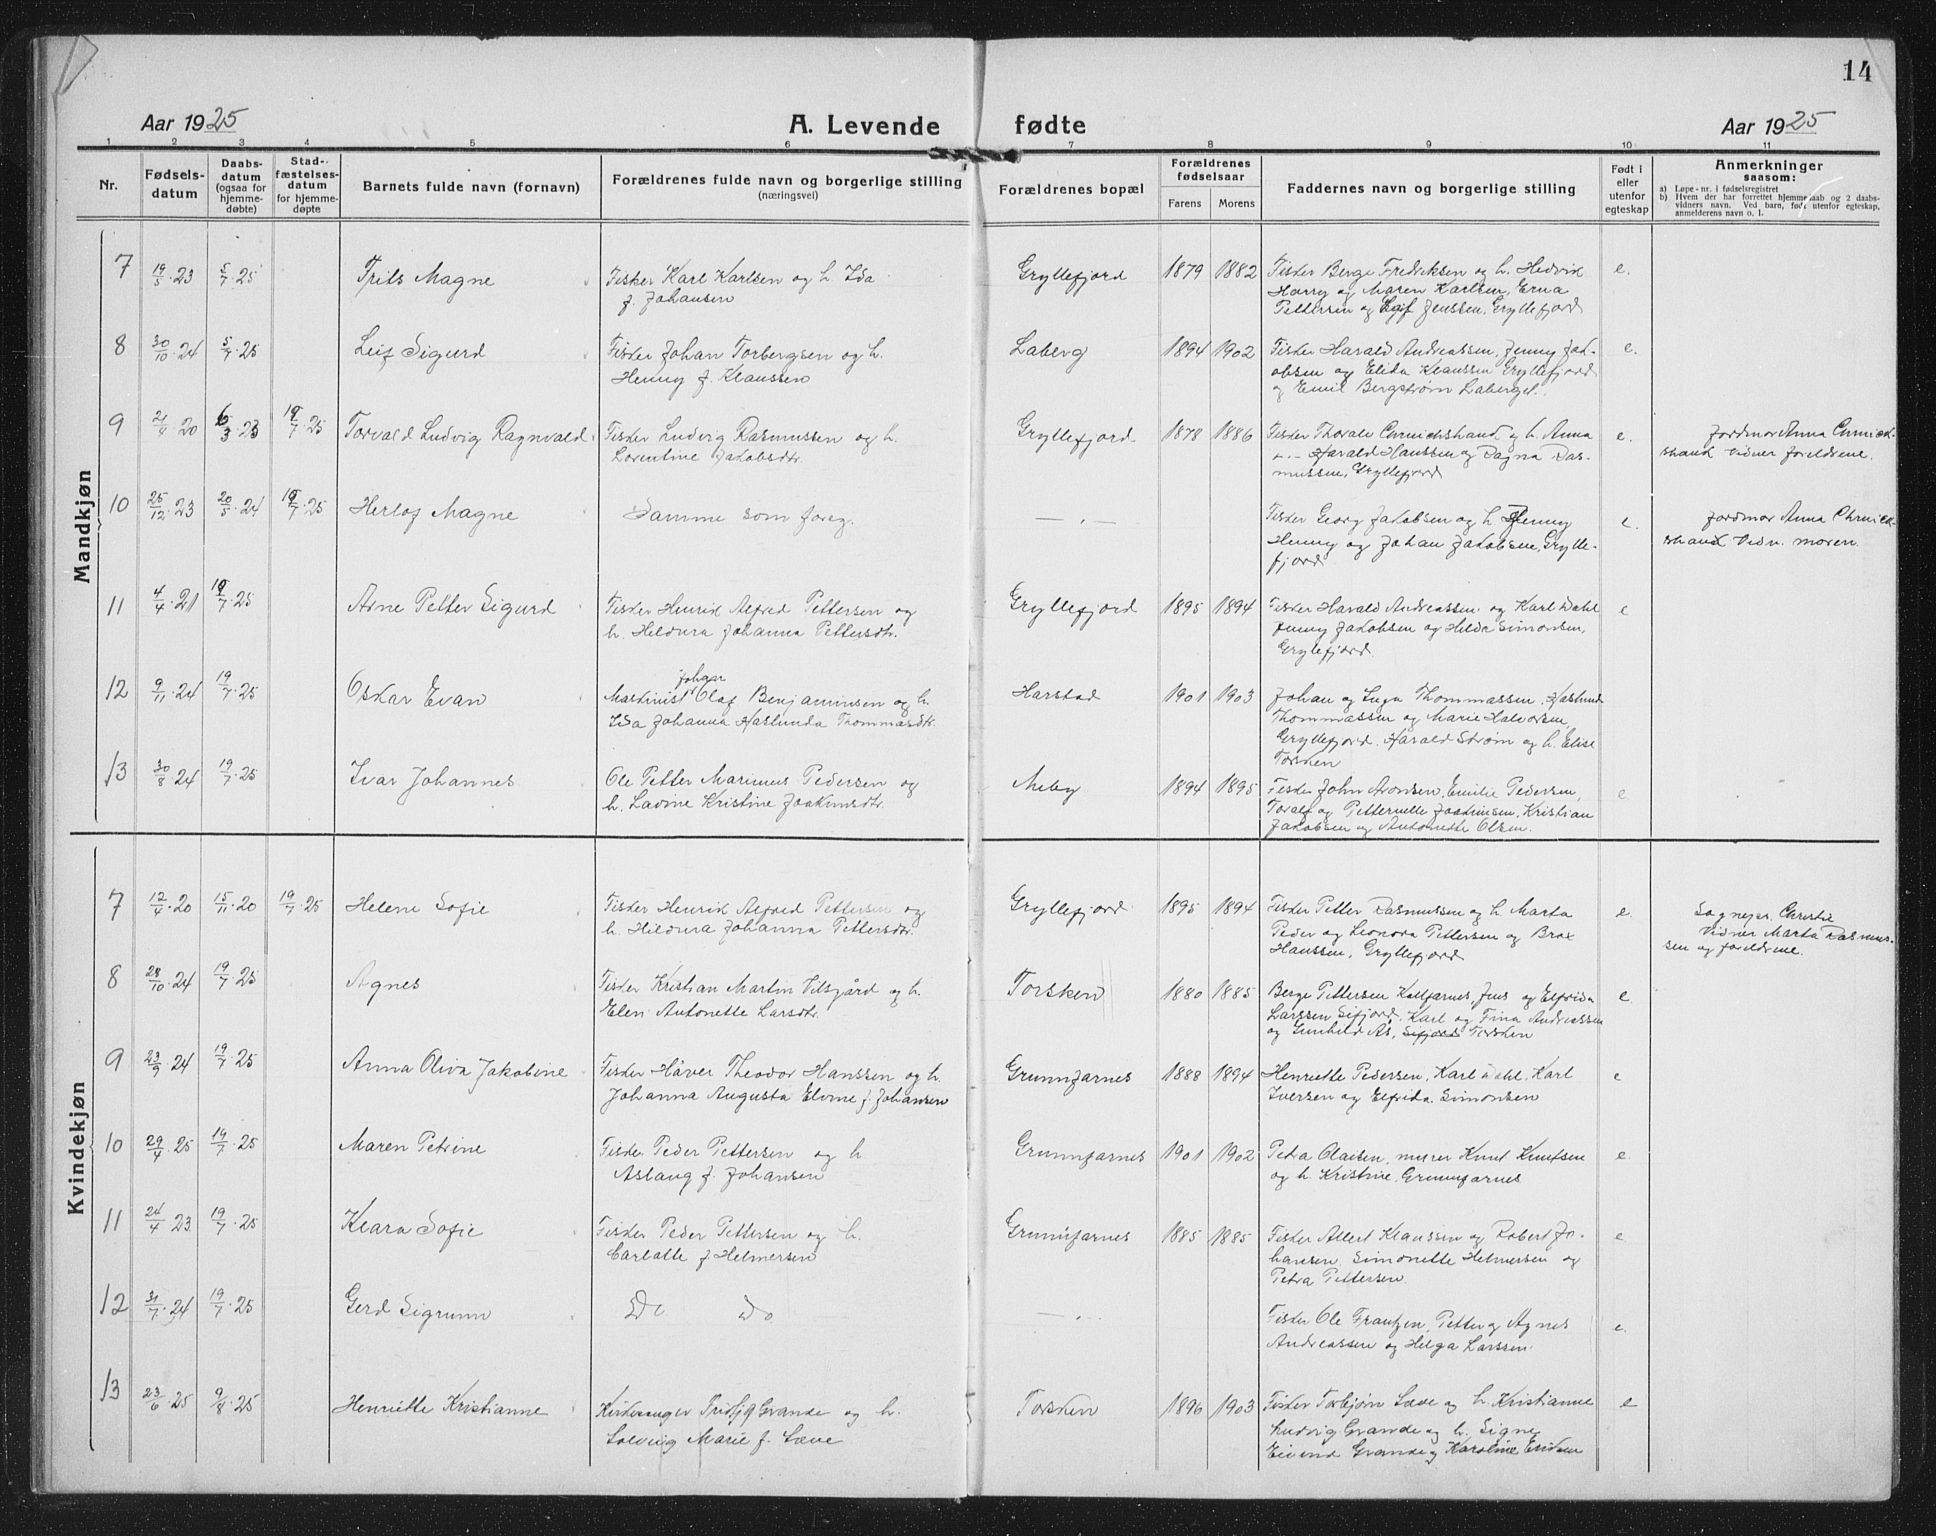 14
Aar 1925 A. Levende fødte Aar 1925
1 2 3 4 5 6 7 8 9 10 11
Nr.
Fødsels-
datum
Daabs-
datum
(ogsaa for
hjemme-
døbte)
Stad-
fæstelses-
datum
for hjemme-
døpte
Barnets fulde navn (fornavn)
Forældrenes fulde navn og borgerlige stilling
(næringsvei)
Forældrenes bopæl
Forældrenes
fødselsaar
Farens Morens
Faddernes navn og borgerlige stilling
Født i
eller
utenfor
egteskap
Anmerkninger
saasom:
a) Løpe-nr. i fødselsregistret
b) Hvem der har forrettet hjemmedaab og 2 daabs-
vidners navn. Ved barn, født utenfor egteskap,
anmelderens navn o. l.
Mandkjøn
7 19/5.23 5/7.25 Frits Magne
Fisker Karl Karlsen og h. Ida
f. Johansen
Gryllefjord 1879 1882
Fisker Berge Fredriksen og h. Hedvik
Harry og Maren Karlsen, Erna
Pettersen og Leif Jenssen, Gryllefjord
e.
8 30/10.24 5/7.25 Leif Sigurd
Fisker Johan Torbergsen og h.
Henny f. Klaussen
Laberg 1894 1902
Fisker Harald Andreassen, Jenny Jak-
obsen og Elida Klaussen Gryllefjord
og Emil Bergstrøm Laberget.
e.
9 21/4 20 6/3.23 19/7.25 Torvald Ludvig Ragnvald
Fisker Ludvig Rasmussen og h.
Lorentine Jakobsdtr.
Gryllefjord 1878 1886
Fisker Thorale og h. Anna
Harald Hanssen og Dagna Ras-
mussen, Gryllefjord
e.
Jordmor Anna
Vidner foreldrene.
10 25/12.23 20/5.24 19/7.25 Herlof Magne
Samme som foreg.
— „ —
Fisker Georg Jakobsen og h. Jenny
Henny og Johan Jakobsen, Grylle-
fjord
e.
Jordmor Anna
Vidn. moren.
11 4/4.21 19/7.25 Arne Petter Sigurd
Fisker Henrik Alfred Pettersen og
h. Hildura Johanna Pettersdtr.
Gryllefjord 1895 1894
Fisker Harald Andreassen og Karl Dahl
Jenny Jakobsen og Hilda Simonsen,
Gryllefjord
e
12 9/11.24 19/7.25 Oskar Evan
Johan
Maskinist Olaf Benjaminsen og h.
Ida Johanna Haslunda Thommasdtr.
Harstad 1901 1903
Johan og Inga Thommassen, Haslund
Thommassen og Marie Halvorsen,
Gryllefjord. Harald Strøm og h. Elise
Torsken
13 30/8.24 19/7.25 Ivar Johannes
Ole Petter Marinus Pedersen og
h. Lavine Kristine Joakimsdtr.
Meby 1894 1895
Fisker John Aronsen, Emilie Pedersen,
Toralf og Petternelle Joakimsen, Kristian
Jakobsen og Antonette Olsen.
e
Kvindekjøn
7 12/4.20 15/11.20 19/7.25 Helene Sofie
Fisker Henrik Alfred Pettersen og
h. Hildura Johanna Pettersdtr.
Gryllefjord 1895 1894
Fisker Petter Rasmussen og h. Marta
Peder og Leonora Pettersen og
Hanssen, Gryllefjord
e.
Sognepr. Christie
Vidner Marta Rasmus-
sen og foreldrene.
8 28/10.24 19/7.25 Agnes
Fisker Kristian Martin Vilsgård og h.
Elen Antonette Larsdtr.
Torsken 1880 1885
Berge Pettersen Kalfjarnes, Jens og Elfrida
Larssen Sifjord, Karl og Fina Andreassen
og Gunhild As, Sifjord Torsken
e.
9 23/9.24 19/7.25 Anna Oliva Jakobine
Fisker Håver Theodor Hanssen og h.
Johanna Augusta Elvine f. Johansen
Grunnfarnes 1888 1894
Henriette Pedersen, Karl Dahl, Karl
Iversen og Elfrida Simonsen
e
10 29/4.25 19/7.25 Maren Petrine
Fisker Peder Pettersen og h
Aslaug f. Johansen
Grunnfarnes 1901 1902
Petra Olaisen, murer Knut Knutsen
og h. Kristine, Grunnfarnes
e.
11 24/4 23 19/7.25 Klara Sofie
Fisker Peder Pettersen og h.
Carlotte f Helmersen
Grunnfarnes 1885 1885
Fisker Albert Klaussen og Robert Jo-
hansen, Simonette Helmersen og
Petra Pettersen
e
12 31/7.24 19/7.25 Gerd Sigrunn
Do Do
— „ —
Fisker Ole Frantzen, Petter og Agnes
Andreassen og Helga Larssen.
e.
13 23/6.25 9/8.25 Henriette Kristianne
Kirkesanger Grande og h.
Solveig Marie f. Læve
Torsken 1896 1903
Fisker Torbjørn Læve og h. Kristianne
Ludvig Grande og h. Signe
Eivind Grande og Karoline
e